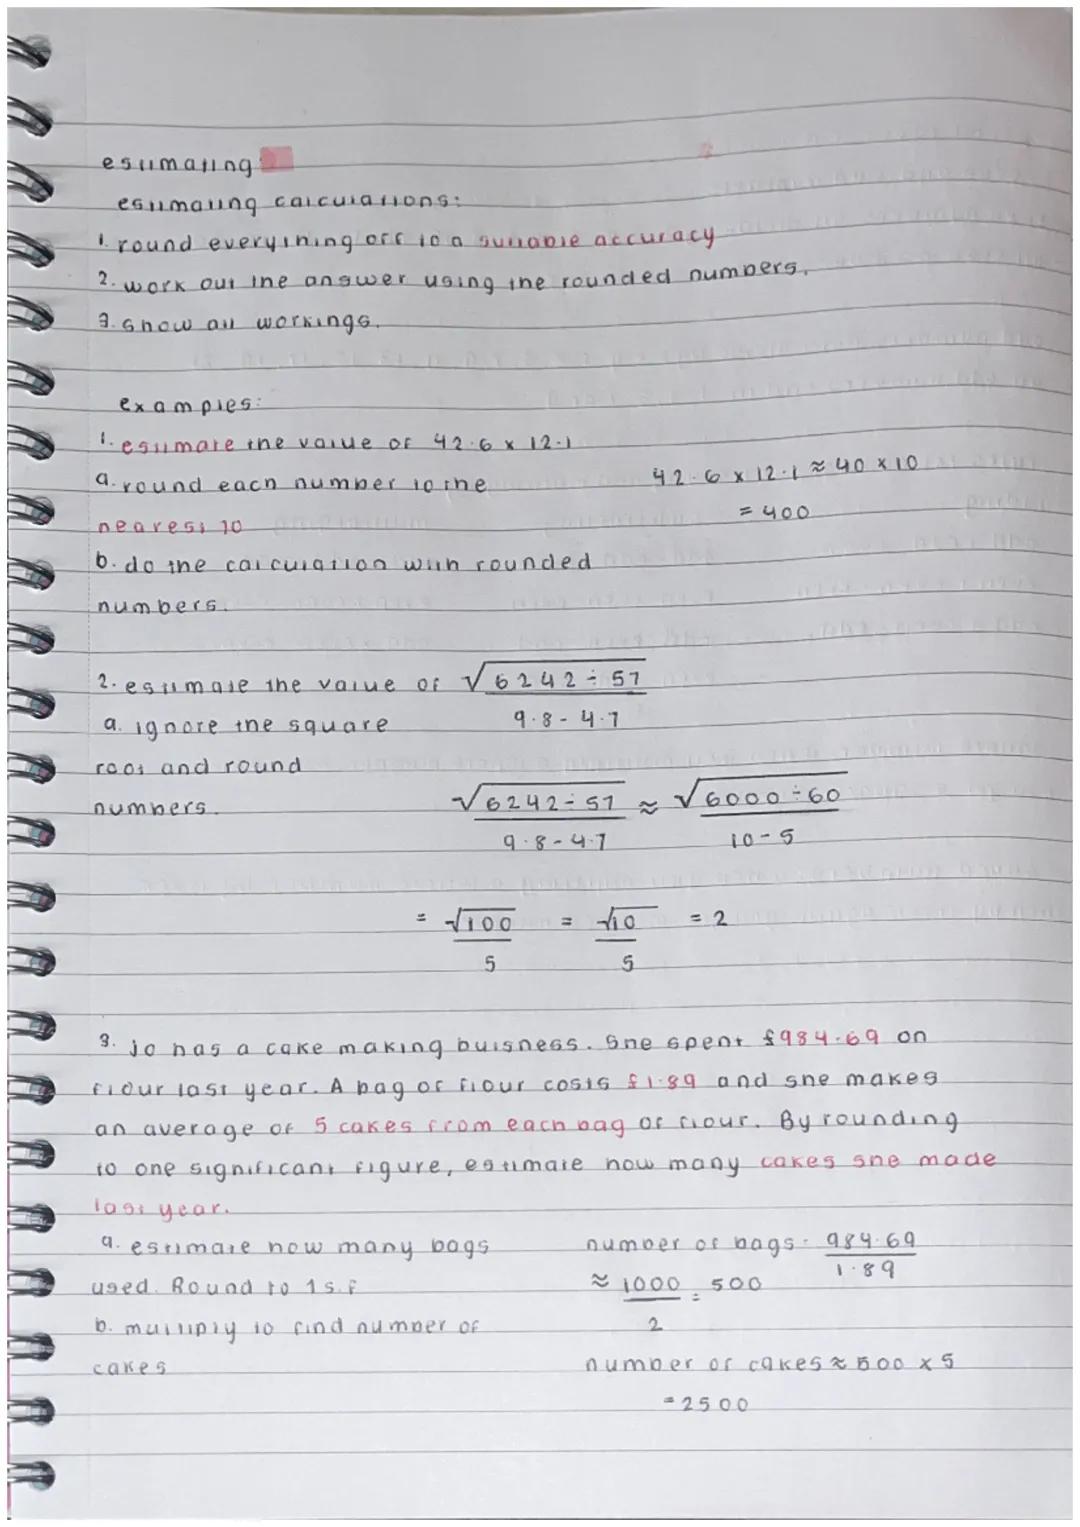 estimating:
estimating calculations:
1. round everything off to a suitable accuracy
2. work out the answer using the rounded numbers.
3. show all workings.
examples:
1. estimate the value of 42.6 x 12.1
a. round each number to the
nearest 10
42.6 x 12.1 ≈ 40 x 10
= 400
b. do the calculation with rounded
numbers.
2. estimate the value of √6242 ÷ 57
9.8 - 4.7
a. ignore the square
root and round
numbers.
√6242 ÷ 57 ≈ √6000 ÷ 60
9.8 - 4.7 10 - 5
= √100 = √10 = 2
5 5
3. jo has a cake making buisness. She spent £984.69 on
flour last year. A bag of flour costs £1.89 and she makes
an average of 5 cakes from each bag of flour. By rounding
to one significant figure, estimate how many cakes she made
last year.
a. estimate how many bags
used. Round to 1 s.f
number of bags = 984.69
1.89
≈ 1000 = 500
2
b. multiply to find number of
cakes
number of cakes ≈ 500 x 5
= 2500